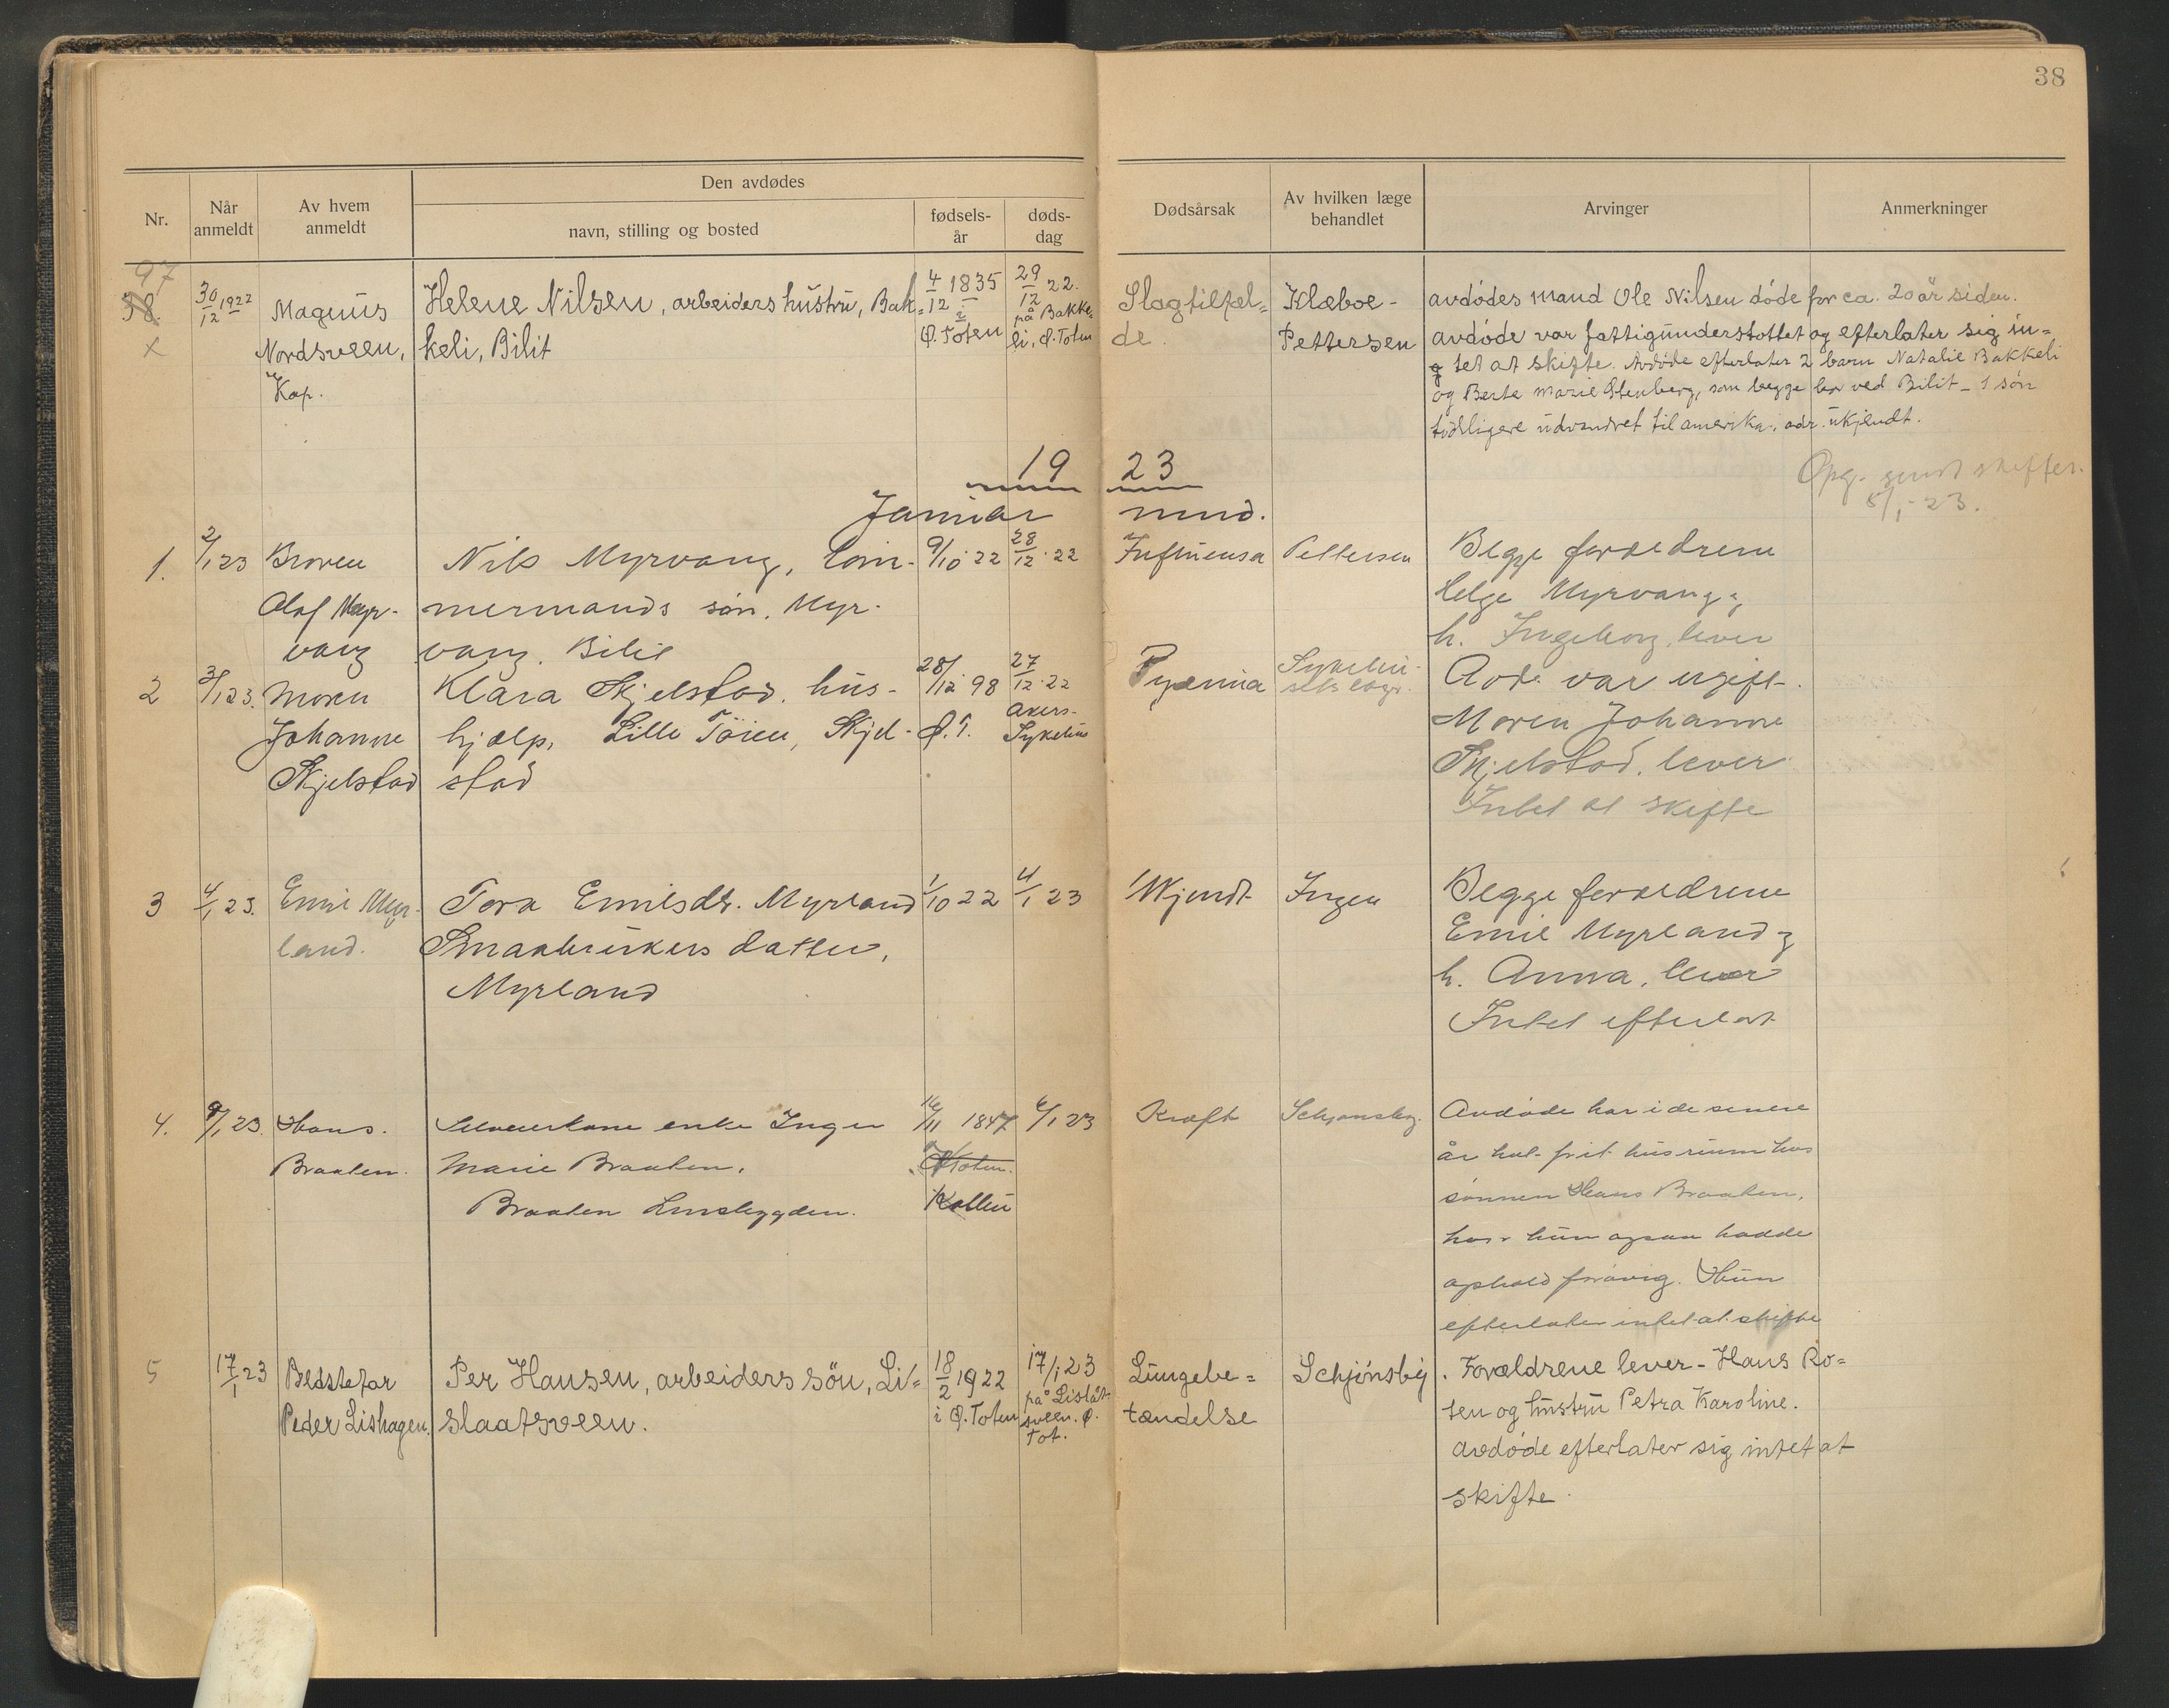 38
Den avdødes
Nr.
Når anmeldt
Av hvem anmeldt
navn, stilling og bosted
fødsels-år
døds-dag
Dødsårsak
Av hvilken læge behandlet
Arvinger
Anmerkninger
97
38.
x
30/12 1922
Magnus
Nordsveen,
Kap.
Helene Nilsen, arbeiders hustru, Bak=
keli, Bilit
4/12 1835
i
Ø. Toten
29/12 22.
på Bakke=
li, Ø. Toten
Slagtilfæl=
de.
Klæboe-
Pettersen
avdødes mand Ole Nilsen døde for ca. 20 år siden.
avdøde var fattigunderstøttet og efterlater sig in=
tet at skifte. Avdøde efterlater 2 barn Natalie Bakkeli
og Berte Marie Stenberg, som begge bor ved Bilit - 1 søn
tidligere udvandret til amerika, adr. ukjendt.
Opg. sendt skifter.
5/1-23.
1923
Januar mnd.
1.
2/1 23
Broren
Olaf Myr-
vang
Nils Myrvang, töm-
mermands søn. Myr-
vang. Bilit
9/10 22
28/12 22
Influensa
Pettersen
Begge forældrene
Helge Myrvang &
h. Ingeborg, lever
2
3/1 23.
Moren
Johanne
Skjelstad
Klara Skjelstad. hus-
hjælp, Lille Töien, Skjel-
stad
28/12 98
Ø.T.
27/12 22
Akers-
Sykehus
Pyæmia
Sykehu-
sets læge.
Avd. var ugift.
Moren Johanne
Skjelstad. lever
Intet at skifte
3
4/1 23.
Emil Myr-
land.
Tora Emilsdt. Myrland
Smaabrukers datter,
Myrland
1/10 22
4/1 23
Ukjendt
Ingen
Begge forældrene
Emil Myrland &
h. Anna, lever
Intet efterlat
4.
9/1 23.
Hans
Braaten.
enke Inger
Marie Braaten.
Braaten
16/11 1847
Ø Toten.
Kolbu
6/1 23
Kræft
Schjønsby.
Avdøde har i de senere
år hat frit husrum hos
sønnen Hans Braaten,
hvor hun ogsaa hadde
ophold forøvrig. Hun
efterlater intet at skifte
5
17/1 23
Bedstefar
Peder Lishagen.
Per Hansen, arbeiders søn, Li=
slaatsveen.
18/2 1922
i Ø. Toten
17/1 23
på Lislåt-
sveen. Ø.
Tot.
Lungebe=
tændelse
Schjønsby
. Forældrene lever - Hans Ro=
ten og hustru Petra Karoline.
avdøde efterlater sig intet at
skifte.